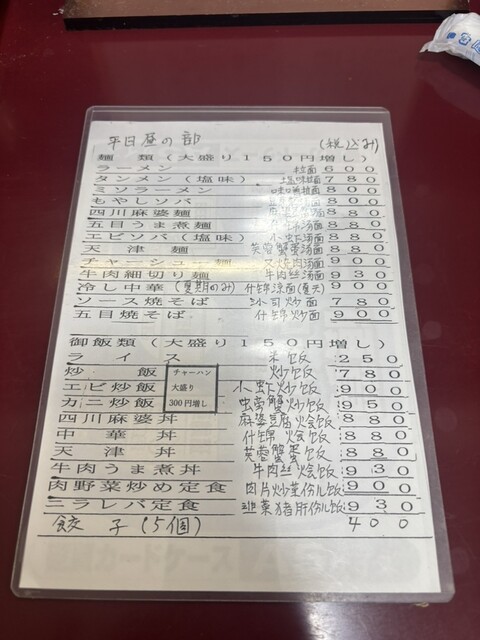 平日昼の部 (税込み)
麺類(大盛り150円増し)
ラーメン 拉面 600
タンメン(塩味) 塩味拉面 780
ミソラーメン 味噌拉面 800
もやしソバ 800
四川麻婆麺 880
五目うま煮麺 汤面 880
エビソバ(塩味) 小虾汤面 880
天津麺 芙蓉蟹蛋汤面 880
チャーシュー麺 叉焼肉汤面 900
牛肉細切り麺 牛肉丝汤面 930
冷し中華(夏期のみ) 什锦凉面(夏天) 900
ソース焼そば 炒面 780
五目焼そば 什锦炒面 900
御飯類(大盛り150円増し)
ライス 米饭 250
炒飯 炒饭 780
チャーハン
大盛り
300円増し
エビ炒飯 小虾炒饭 900
カニ炒飯 蟹炒饭 950
四川麻婆丼 麻婆豆腐烩饭 880
中華丼 什锦烩饭 880
天津丼 芙蓉蟹蛋饭 880
牛肉うま煮丼 牛肉丝烩饭 930
肉野菜炒め定食 肉片炒菜份儿饭 900
ニラレバ定食 韮菜猪肝份儿饭 930
餃子(5個) 400